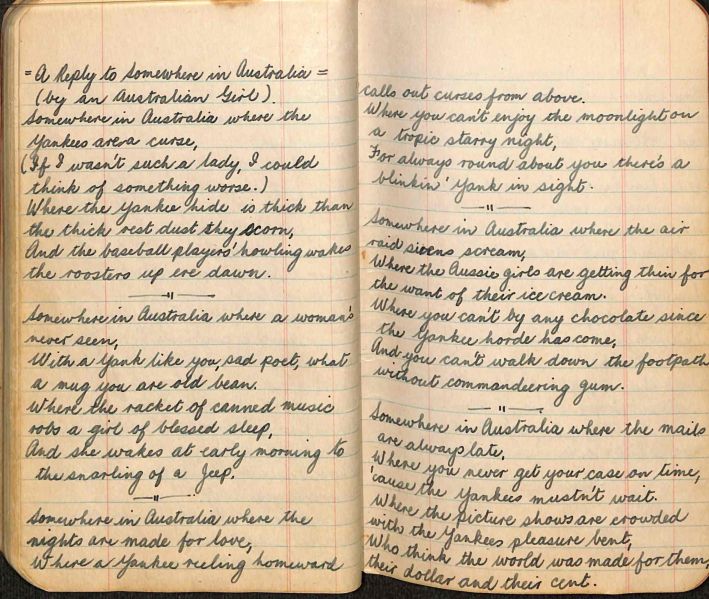 = A Reply to Somewhere in Australia =
(by an Australian Girl).
Somewhere in Australia where the
Yankees are a curse,
(If I wasn't such a lady, I could
think of something worse.)
Where the Yankee hide is thick than
the thick rest dust they scorn,
And the baseball players' howling wakes
the roosters up ere dawn.
—"—
Somewhere in Australia where a woman's
never seen,
With a Yank like you, sad poet, what
a mug you are old bean.
Where the racket of canned music
robs a girl of blessed sleep,
And she wakes at early morning to
the snarling of a Jeep.
—"—
Somewhere in Australia where the
nights are made for love,
Where a Yankee reeling homeward
calls out curses from above.
Where you can't enjoy the moonlight on
a tropic starry night,
For always round about you there's a
blinkin' Yank in sight.
—"—
Somewhere in Australia where the air
raid sirens scream,
Where the Aussie girls are getting thin for
the want of their ice cream.
Where you can't by any chocolate since
the Yankee horde has come,
And you can't walk down the footpath
without commandeering gum.
—"—
Somewhere in Australia where the mails
are always late,
Where you never get your case on time,
'cause the Yankees mustn't wait.
Where the picture shows are crowded
with the Yankees pleasure bent,
Who think the world was made for them,
their dollar and their cent.